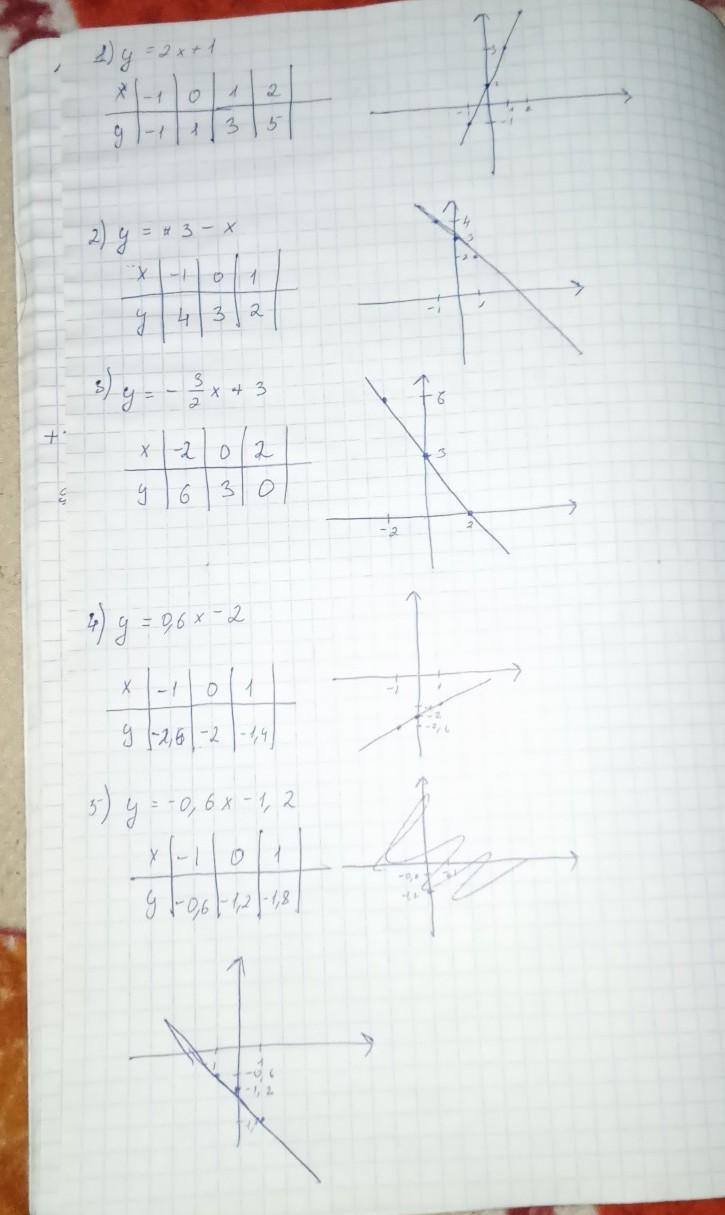 1) y = 2x + 1
x -1 0 1 2
y -1 1 3 5
3
1
-1 1 2
-1
2) y = 3 - x
x -1 0 1
y 4 3 2
4
3
2
-1 1
3) y = - 3/2 x + 3
x -2 0 2
y 6 3 0
6
3
-2 2
4) y = 0,6x - 2
x -1 0 1
y -2,6 -2 -1,4
-1 1
-2
-2,6
5) y = -0,6x - 1,2
x -1 0 1
y -0,6 -1,2 -1,8
-1 1
-0,6
-1,2